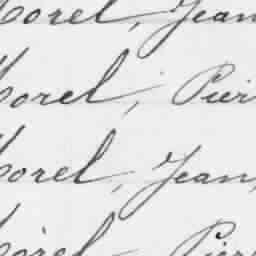 Morel, Jean
Morel, Pier
Morel, Jean,
Morel, Pier